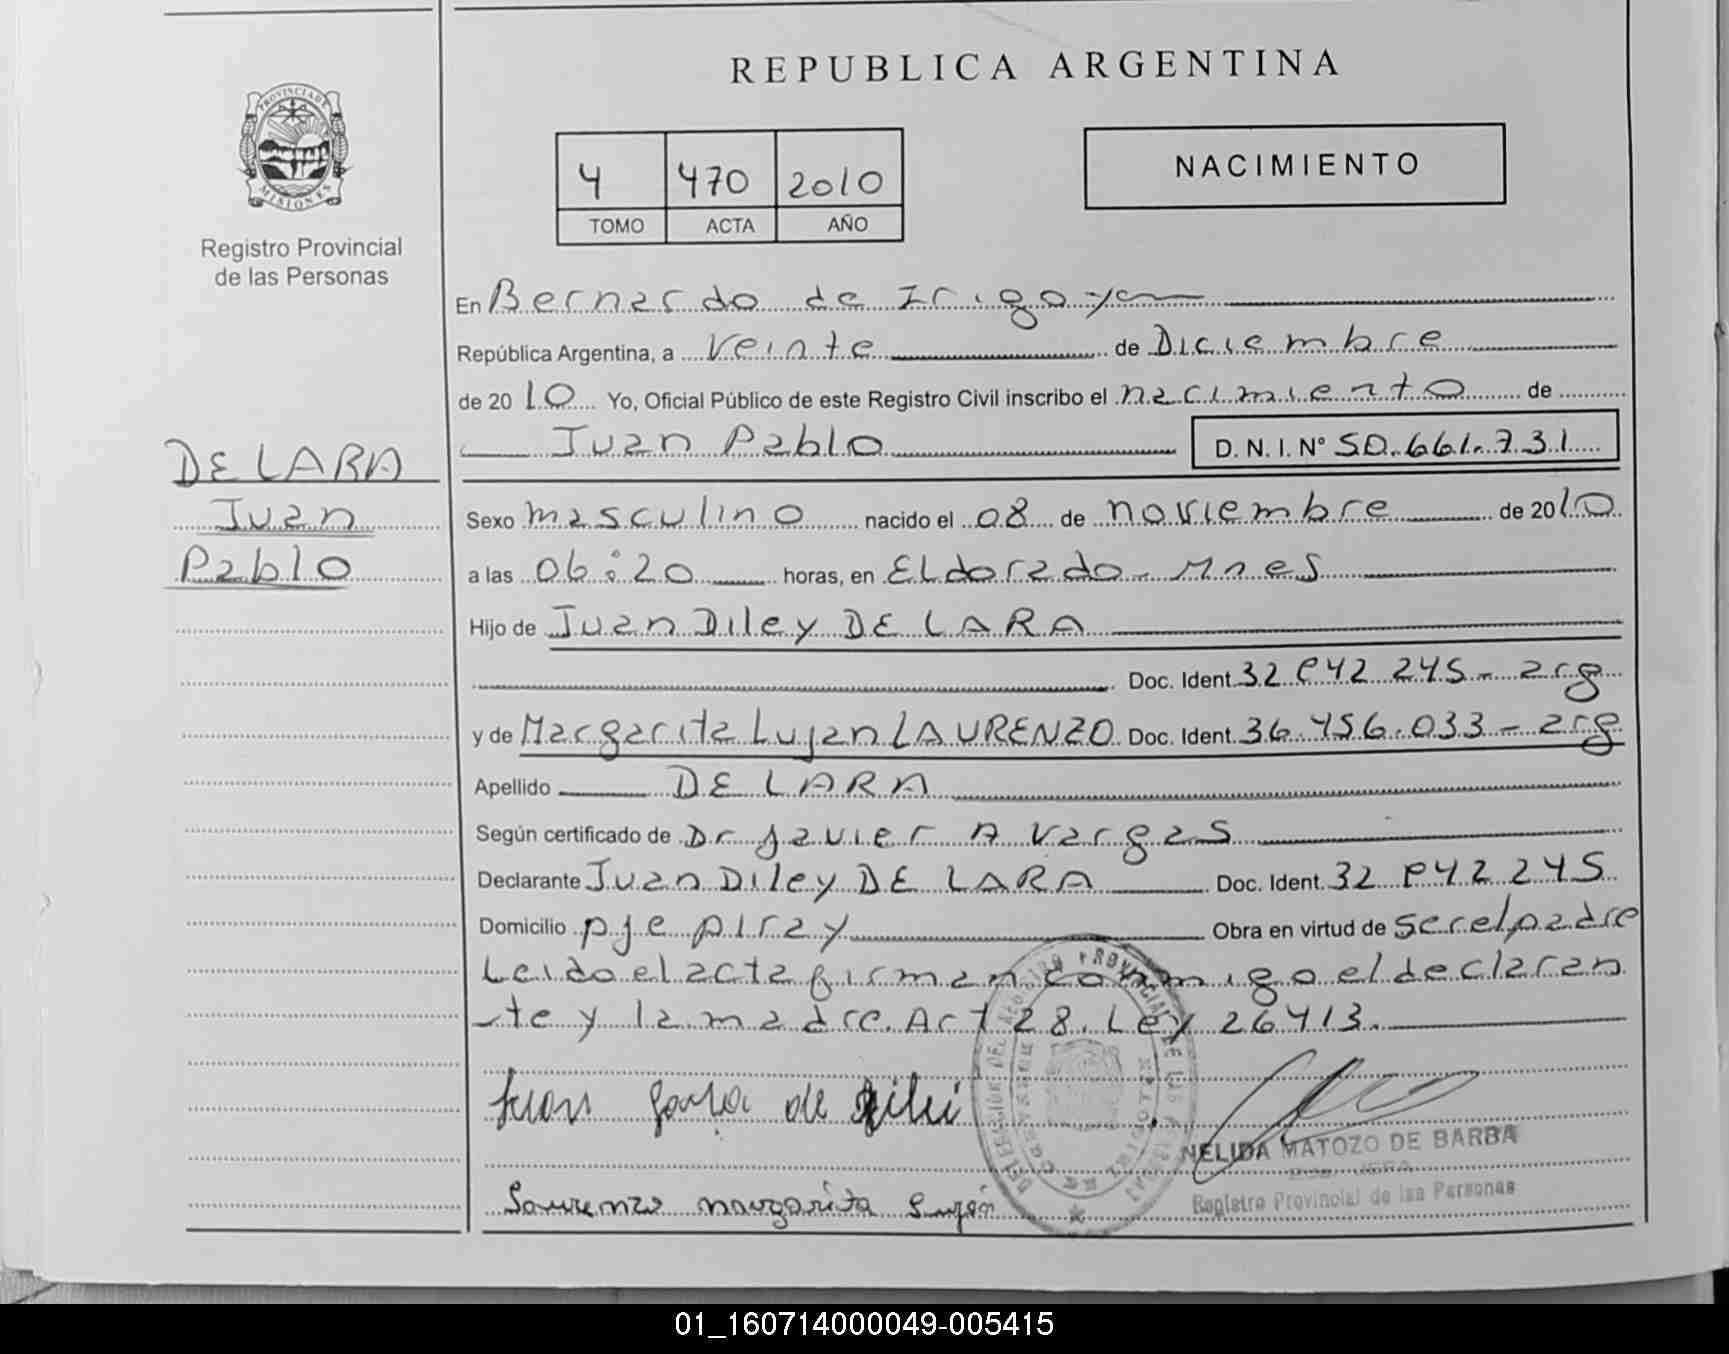 REPUBLICA ARGENTINA
PROVINCIA DE
MISIONES
Registro Provincial
de las Personas
4 470 2010
TOMO ACTA AÑO
NACIMIENTO
En Bernardo de Irigoyen
República Argentina, a Veinte de Diciembre
de 2010 Yo, Oficial Público de este Registro Civil inscribo el nacimiento de
Juan Pablo D.N.I.Nº 50.661.731
DE LARA
Juan
Pablo
Sexo masculino nacido el 08 de noviembre de 2010
a las 06:20 horas, en Eldorado - Mnes
Hijo de Juan Diley DE LARA
Doc. Ident. 32 242 245 - arg
y de Margarita Lujan LAURENZO Doc. Ident. 36.456.033 - arg
Apellido DE LARA
Según certificado de Dr Javier A Vargas
Declarante Juan Diley DE LARA Doc. Ident. 32 242 245
Domicilio pje piray Obra en virtud de ser el padre
Leido el acta firman conmigo el declaran
-te y la madre. Art 28. Ley 26413.
Juan de
Laurenzo margarita Luján
NELIDA MATOZO DE BARBA
Registro Provincial de las Personas
01_160714000049-005415